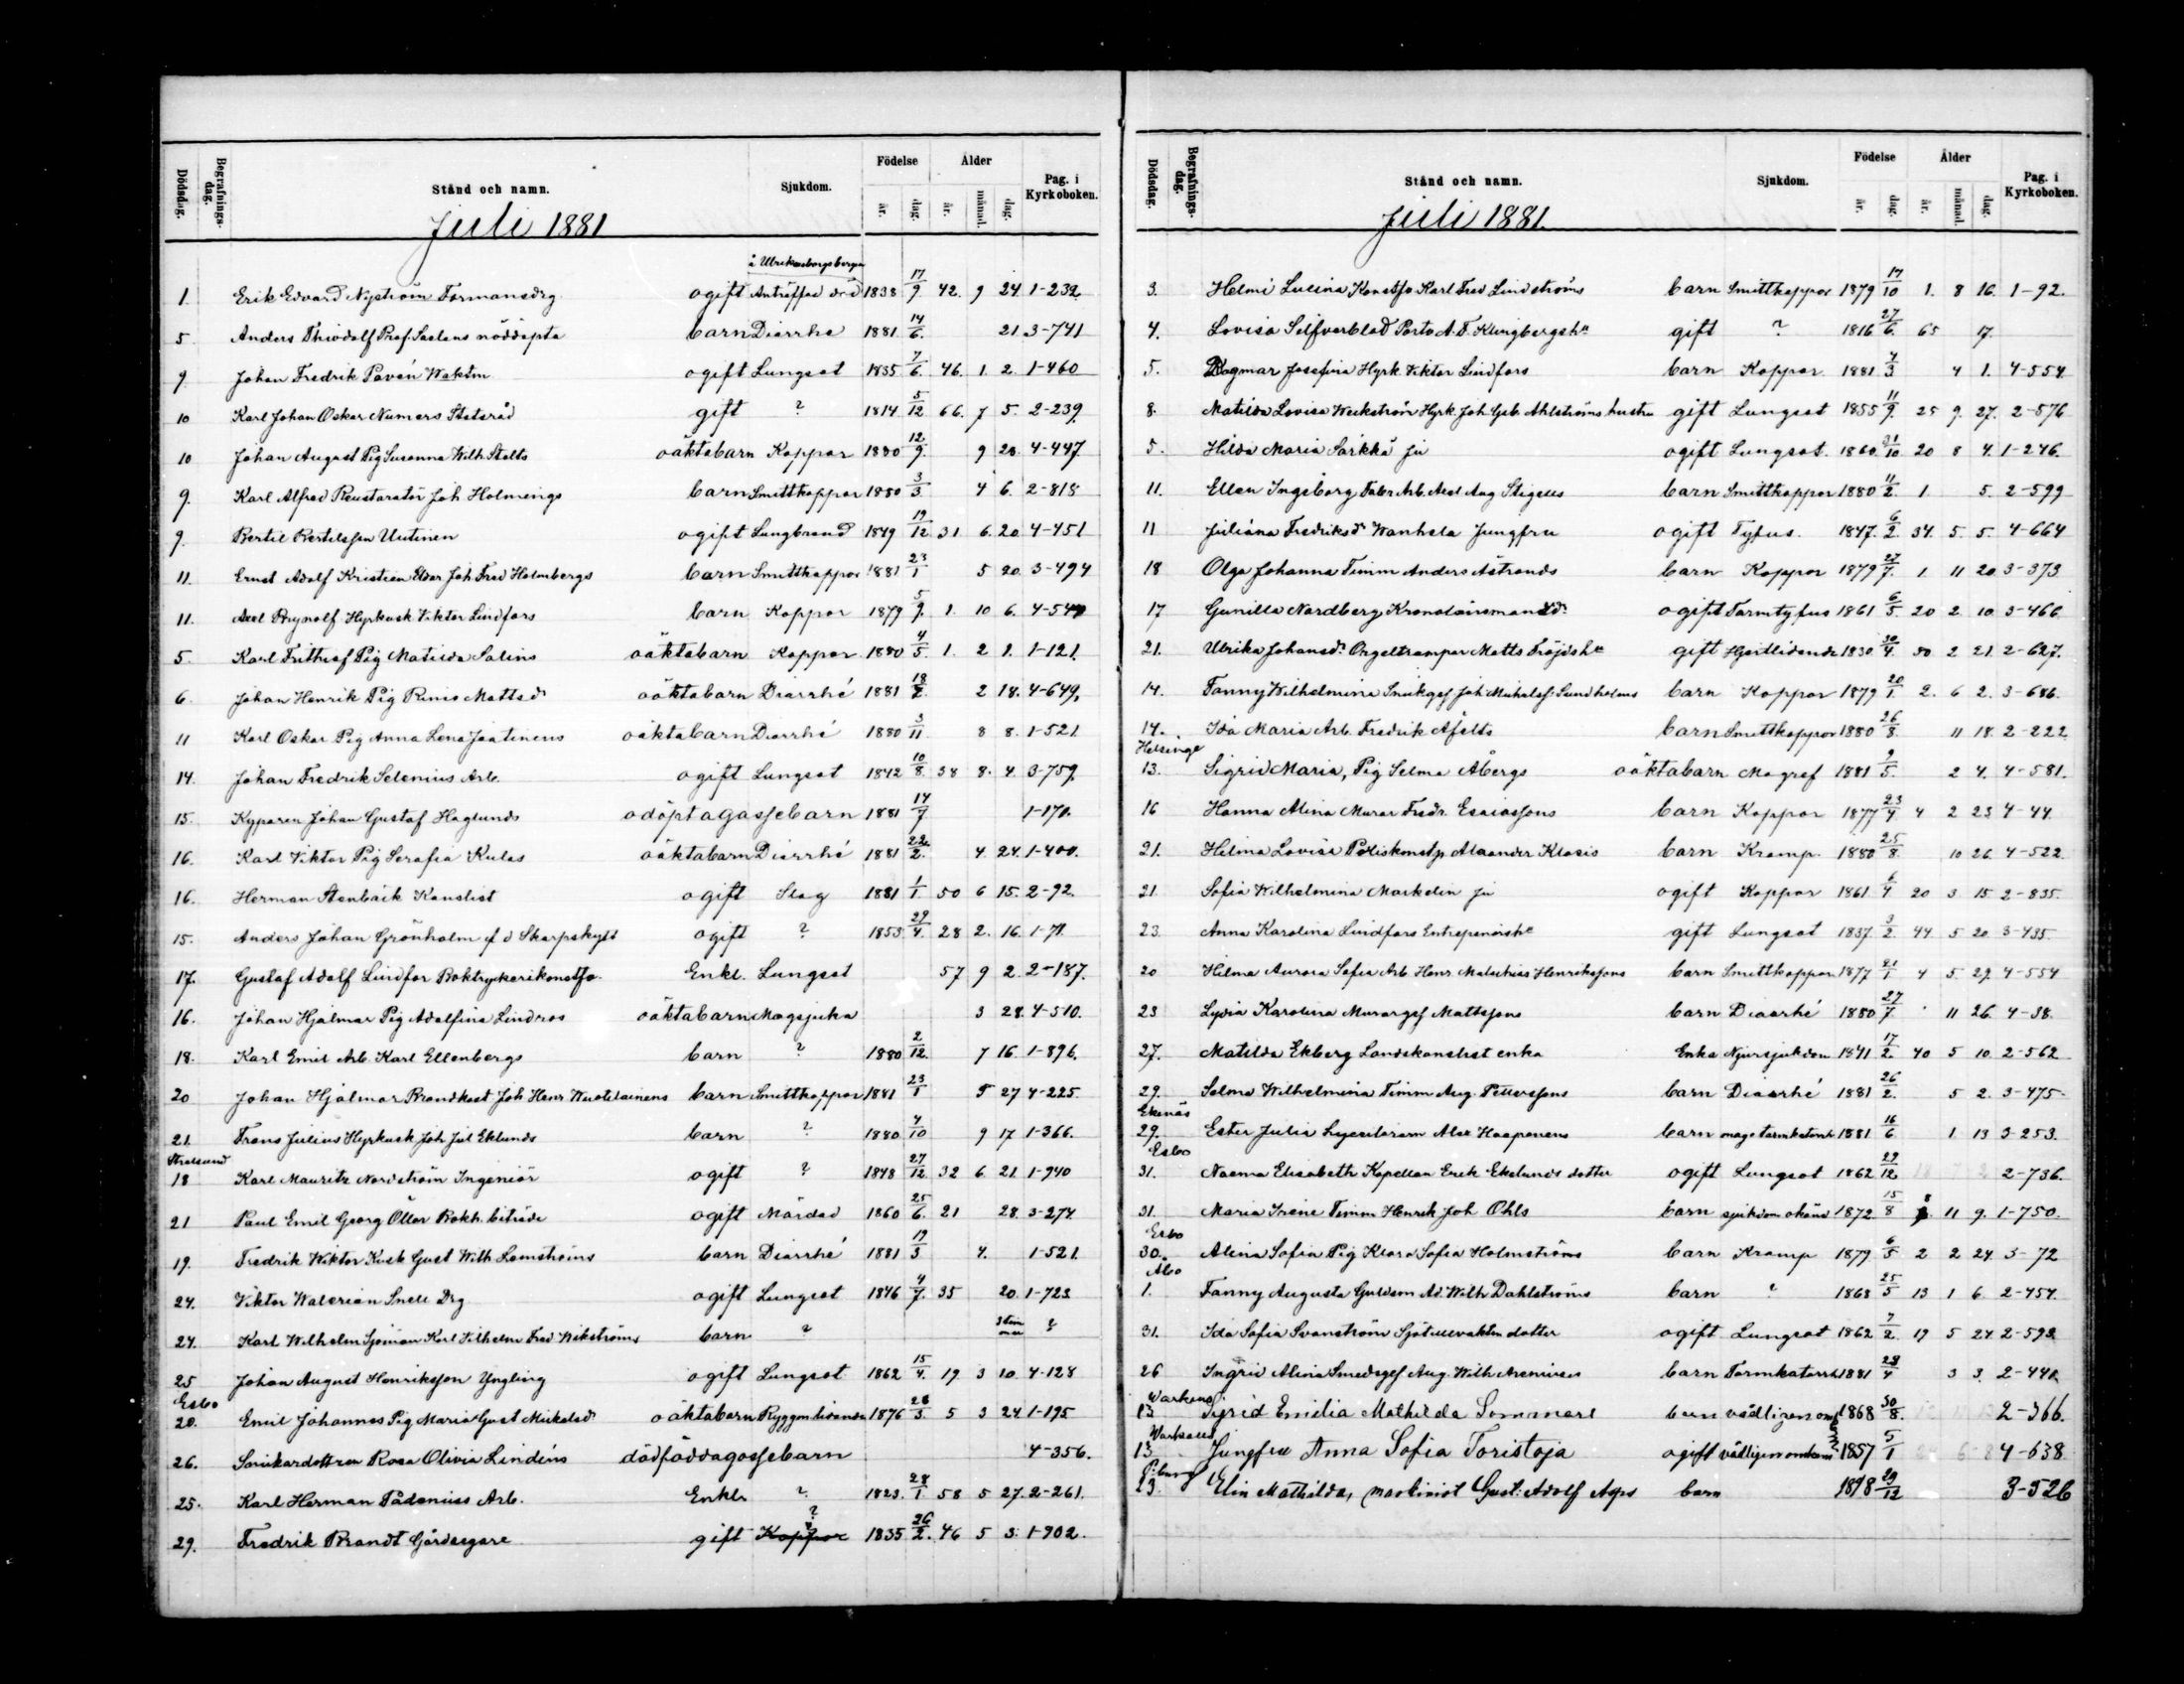 Dödsdag. Begrafningsdag. Stånd och namn. Sjukdom. Födelse år. dag. Ålder år. månad. dag. Pag. i Kyrkoboken.
Juli 1881
1. Erik Edvard Nyström Formansdrg ogift å Ulrikasborgsbergen Anträffad död 1838 17/9 42. 9 24 1-232
5 Anders Thiodolf Prof. Saelans nöddöpta barn Diarrhe 1881 14/6. 21 3-741
9. Johan Fredrik Pavén Waktm ogift Lungsot 1835 7/6. 46. 1. 2. 1-460
10 Karl Johan Oskar Numers Statsråd gift ? 1814. 5/12 66. 7 5. 2-239.
10 Johan August Pig Susanna Wilh. Stolts oäktabarn Koppor 1880 12/9. 9 28 4-447.
9. Karl Alfred Reustaratör Joh Holmings barn Smittkoppor 1880 3/3. 4 6. 2-818
9. Bertil Bertilsson Uutinen ogift Lungbrand 1849 19/12 31 6. 20. 4-451
11. Ernst Adolf Kristian Eldar Joh Fred Holmbergs barn Smittkoppor 1881 23/1 5 20. 3-494
11. Axel Brynolf Hyrkusk Viktor Lindfors barn Koppor 1879 5/9. 1. 10 6. 4-544
5. Karl Frithiof Pig Matilda Salins oäktabarn Koppor 1880 4/5. 1. 2 1. 1-121.
6. Johan Henrik Pig Mattsdr oäktabarn Diarrhé 1881 18/2. 2 18. 4-649,
11 Karl Oskar Pig Anna Lena Jaatinens oäktabarn Diarrhé 1880 3/11 8 8. 1-521.
14. Johan Fredrik Selenius Arb. ogift Lungsot 1842 10/8. 38 8. 4. 3-759.
15. Kyparen Johan Gustaf Haglunds odöpt agossebarn 1881 14/7 1-170.
16. Karl Viktor Pig Serafia Kulas oäktabarn Diarrhé 1881 22/2. 4. 24. 1-400.
16. Herman Stenbäck Kanslist ogift Slag 1881 1/1. 50 6 15. 2-92.
15. Anders Johan Grönholm f d Skarpskytt ogift ? 1853 29/4. 28 2. 16. 1-71.
17. Gustaf Adolf Lindfor Boktryckerikonstfo. Enkl. Lungsot 57 9 2. 2-187.
16. Johan Hjalmar Pig Adolfina Lindros oäktabarn Magsjuka 3 28. 4-510.
18. Karl Emil Arb. Karl Ellenbergs barn ? 1880 2/12. 7 16. 1-896.
20 Johan Hjalmar Brandkast Joh Henr Wuotilainens barn Smittkoppor 1881 23/1 5 27 4-225.
21. Frans Julius Hyrkusk Joh Jul Eklunds barn ? 1880 4/10 9 17 1-366.
Stralsund
18 Karl Mauritz Nordström Ingeniör ogift ? 1848 27/12 32 6. 21. 1-940
21 Paul Emil Georg Öller Bokh. biträde ogift Mördad 1860 25/6. 21 28. 3-274.
19. Fredrik Wiktor Kusk Gust Wilh Lemströms barn Diarrhé 1881 19/3 4. 1-521.
24. Viktor Walerian Snell Drg ogift Lungsot 1846 4/7. 35 20. 1-723
24. Karl Wilhelm Sjöman Karl Vilhelm Fred Wikströms barn ? 3 timmar ?
25 Johan August Henriksson Yngling ogift Lungsot 1862 15/4. 19 3 10. 4-128
Esbo
20. Emil Johannes Pig Maria Gust Mickelsdr oäktabarn Ryggmlidande 1876 28/3. 5 3 24. 1-195
26. Snickardottren Rosa Olivia Lindéns dödföddagossebarn 4-356.
25. Karl Herman Tådenius Arb. Enkl. ? 1823. 28/1 58 5 27. 2-261.
29. Fredrik Brandt Gårdsegare gift ? Koppor 1835 26/2. 46 5 3. 1-902.
Dödsdag. Begrafningsdag. Stånd och namn. Sjukdom. Födelse år. dag. Ålder år. månad. dag. Pag. i Kyrkoboken.
Juli 1881.
3. Helmi Lucina Konstfo Karl Fred Lindströms barn Smittkoppor 1879 17/10 1. 8 16. 1-92.
4. Lovisa Silfverblad Porto A. F. Klingbergs h. gift ? 1816 27/6. 65 17.
5. Dagmar Josefina Hyrk Viktor Lindfors barn Koppor 1881 4/3 4 1. 4-554
8. Matilda Lovisa Weckström Hyrk Joh Gab. Ahlströms hustru gift Lungsot 1855 11/9. 25 9. 27. 2-576
5. Hilda Maria Särkkä ju ogift Lungsot. 1860. 31/10 20 8 4. 1-246.
11. Ellen Ingeborg Fabr Arb. Axel Aug Stigells barn Smittkoppor 1880 11/2. 1 5. 2-599
11 Juliana Fredriksdr Wanhala Jungfru ogift Tyfus. 1847. 6/2 34. 5. 5. 4-664
18 Olga Johanna Timm Anders Åstrands barn Koppor 1879 27/7. 1. 11 20 3-373
17 Gunilla Nordberg Kronolänsmansdr ogift Tarmtyfus 1861 6/5. 20 2 10 3-466.
21. Ulrika Johansdr Orgeltrampar Matts Fröjds h. gift Hjertlidande 1830 30/4. 50 2 21. 2-627.
14. Fanny Wilhelmina Snickgss Joh Michelsf. Sundholms barn Koppor 1879 20/1. 2. 6 2. 3-686.
14. Ida Maria Arb. Fredrik Afelts barn Smittkoppor 1880 26/8. 11 18. 2-222
Helsinge
13. Sigrid Maria, Pig Selma Åbergs oäktabarn Magref 1881 9/5. 2 4. 4-581.
16 Hanna Alina Murar Fredr. Esaiassons barn Koppor 1877 23/4 4 2 23 4-44.
21. Hilma Lovisa Poliskonstp Alexander Klasis barn Kramp. 1880 25/8. 10 26 4-522
21. Sofia Wilhelmina Markelin ju ogift Koppor 1861 6/4 20 3 15. 2-835.
23. Anna Karolina Lindfors Entreprenörs h. gift Lungsot 1837. 3/2. 44 5 20 3-435.
20 Hilma Aurora Sofia Arb. Henr. Matschias Henrikssons barn Smittkoppor 1877 21/1 4 5. 29. 4-554
23 Lydia Karolina Murargss Mattssons barn Diarrhé 1880 27/7. 11 26. 4-38.
27. Matilda Ekberg Landskanslist enka Enka Njursjukdom 1841 17/2. 40 5 10. 2-562
29. Selma Wilhelmina Timm Aug. Petterssons barn Diarrhé 1881 26/2. 5 2. 3-475
Ekenäs
29. Ester Julia Alex Haaponens barn magotarmkatarrh 1881 16/6 1 13 3-253.
Esbo
31. Naema Elisabeth Kapellan Erik Ekelunds dotter ogift Lungsot 1862 29/12 2-736.
31. Maria Irene Timm Henrik Joh Ohls barn sjukdom okänd 1872 15/8 8. 11 9. 1-750.
Esbo
30. Alina Sofia Pig Klara Sofia Holmströms barn Kramp 1879 6/5. 2 2 24. 3-72
Åbo
1. Fanny Augusta Guldsm Ad. Wilh Dahlströms barn ? 1868 25/5 13 1 6. 2-454.
31. Ida Sofia Svanström Sjötullvaktm dotter ogift Lungsot 1862 7/2. 19 5 24. 2-592.
26 Ingrid Alina Smedsgss Aug. Wilh Arenius barn Tarmkatarrh 1881 23/4 3 3. 2-440.
Warkaus
13. Sigrid Emilia Mathilda Sommarl barn vådligen omk 1868 30/8. 2-366.
Warkaus
13. Jungfru Anna Sofia Toristoja ogift vådligen omkom 1857 5/1 4-638
Viborg
23. Elin Mathilda, maskinist Gust. Adolf barn 1878 29/12 3-526